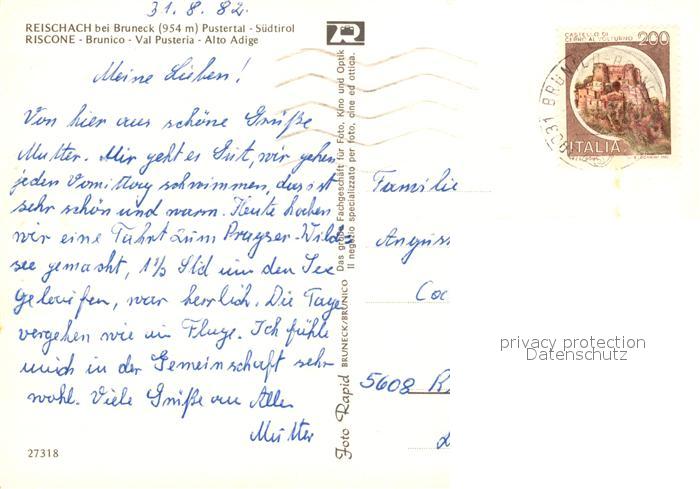 31.8.82.
REISCHACH bei Bruneck (954 m) Pustertal - Südtirol
RISCONE - Brunico - Val Pusteria - Alto Adige
Meine Lieben!
Von hier aus schöne Grüße
Mutter. Mir geht es Gut, wir gehen
jeden Vomittag schwimmen, das ist
sehr schön und warm. Heute haben
wir eine Fahrt zum Pragser-Wild
see gemacht, 1½ Std um den See
gelaufen, war herrlich. Die Tage
vergehen wie im Fluge. Ich fühle
mich in der Gemeinschaft sehr
wohl. Viele Grüße an Alle
Mutter
27318
Foto Rapid BRUNECK/BRUNICO
Das große Fachgeschäft für Foto, Kino und Optik
Il negozio specializzato per foto, cine ed ottica.
CASTELLO DI
CERRO AL VOLTURNO
200
ITALIA
Familie
5608 R
privacy protection
Datenschutz